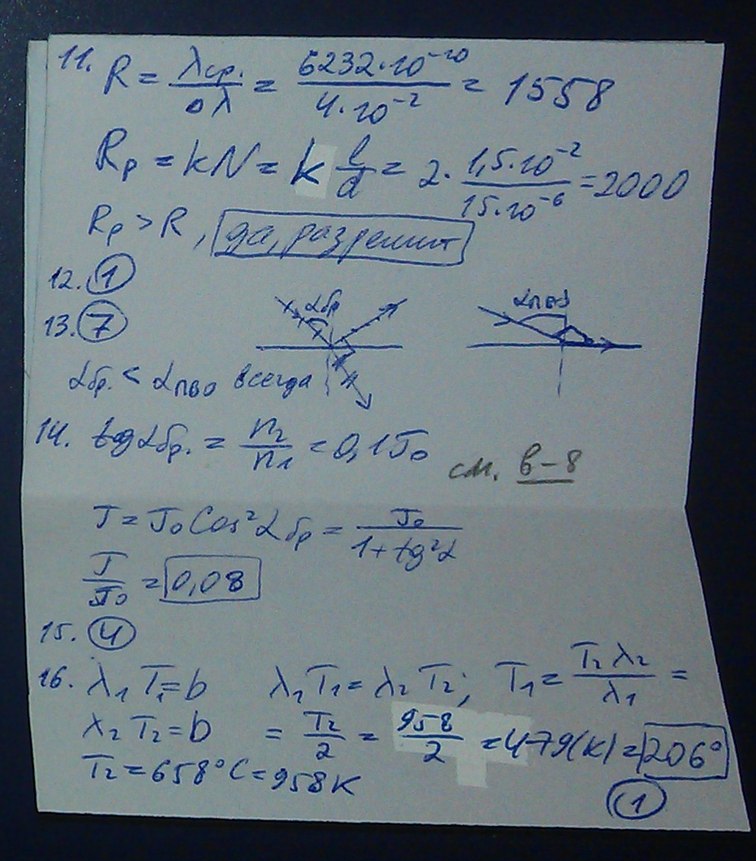 11. R = λср./Δλ = 6232·10⁻¹⁰/4·10⁻² = 1558
Rр = kN = k l/d = 2· 1,5·10⁻²/15·10⁻⁶ = 2000
Rр > R, да, разрешит
12. 1
αбр αпво
13. 7
αбр. < αпво всегда
14. tgαбр. = n₂/n₁ = 0,1J₀ см. в-8
J = J₀Cos²αбр = J₀/1+tg²α
J/J₀ = 0,08
15. 4
16. λ₁T₁=b λ₁T₁=λ₂T₂; T₁= T₂λ₂/λ₁ =
λ₂T₂=b = T₂/2 = 958/2 = 479(K) = 206°
T₂=658°C=958K
1